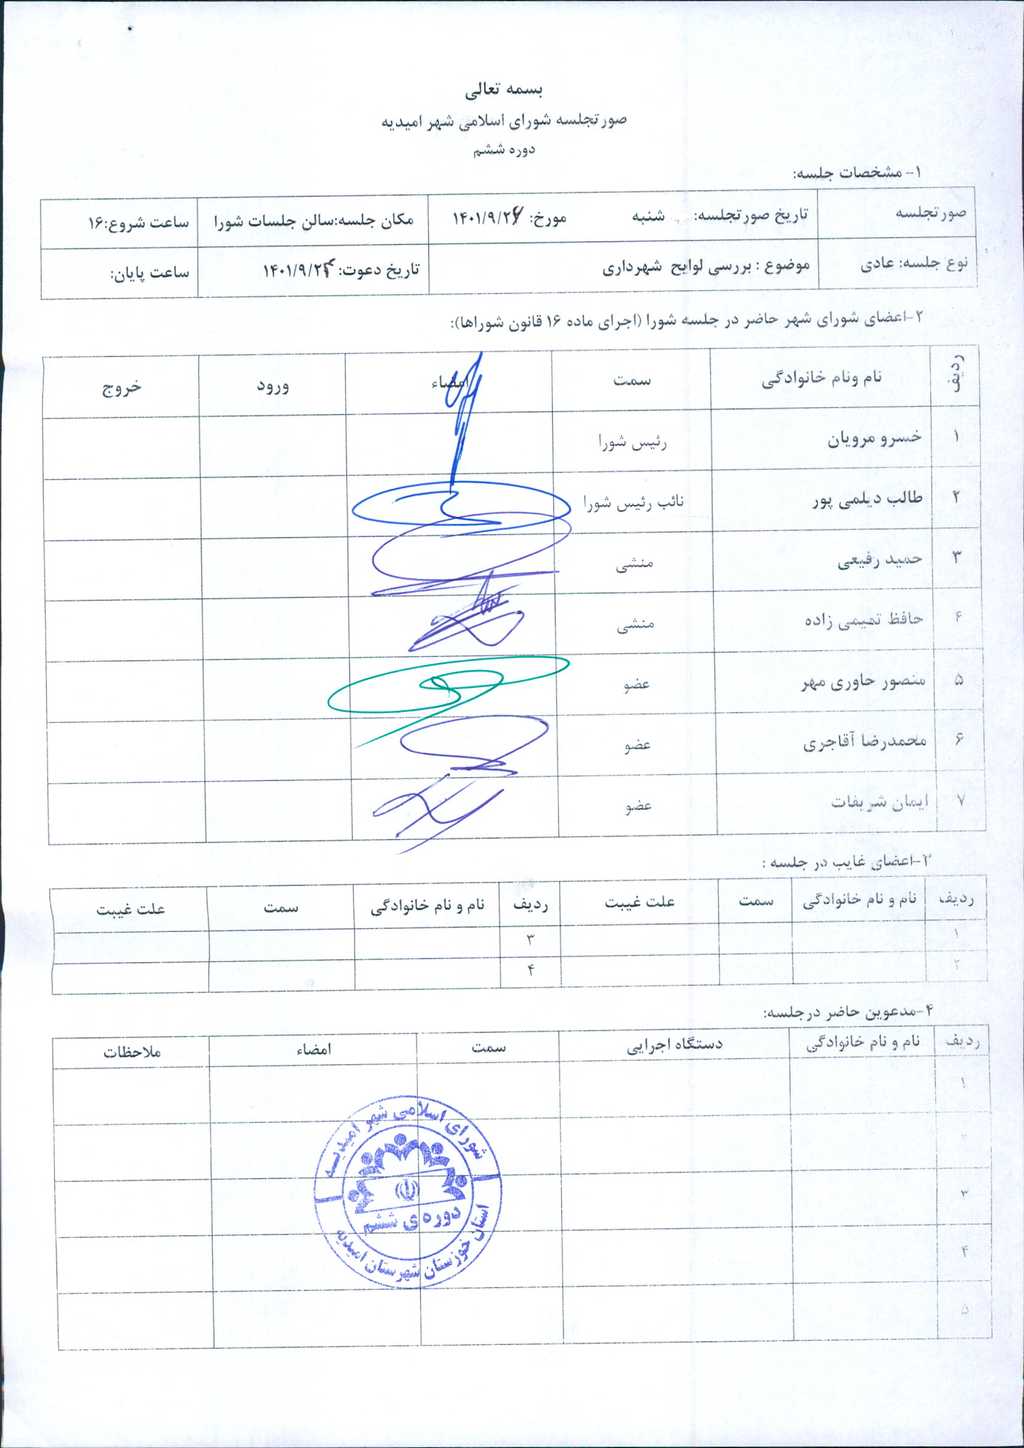 بسمه تعالی
صورتجلسه شورای اسلامی شهر امیدیه
دوره ششم
۱- مشخصات جلسه:
صورتجلسه تاریخ صورتجلسه: شنبه مورخ: ۱۴۰۱/۹/۲۶ مکان جلسه:سالن جلسات شورا ساعت شروع:۱۶
نوع جلسه: عادی موضوع : بررسی لوایح شهرداری تاریخ دعوت: ۱۴۰۱/۹/۲۴ ساعت پایان:
۲-اعضای شورای شهر حاضر در جلسه شورا (اجرای ماده ۱۶ قانون شوراها):
ردیف نام ونام خانوادگی سمت امضاء ورود خروج
۱ خسرو مرویان رئیس شورا
۲ طالب دیلمی پور نائب رئیس شورا
۳ حمید رفیعی منشی
۴ حافظ تمیمی زاده منشی
۵ منصور خاوری مهر عضو
۶ محمدرضا آقاجری عضو
۷ ایمان شریفات عضو
۳-اعضای غایب در جلسه :
ردیف نام و نام خانوادگی سمت علت غیبت ردیف نام و نام خانوادگی سمت علت غیبت
۱ ۳
۲ ۴
۴-مدعوین حاضر درجلسه:
ردیف نام و نام خانوادگی دستگاه اجرایی سمت امضاء ملاحظات
۱
۲
۳
۴
۵
شورای اسلامی شهر امیدیه
دوره ی ششم
استان خوزستان شهرستان امیدیه